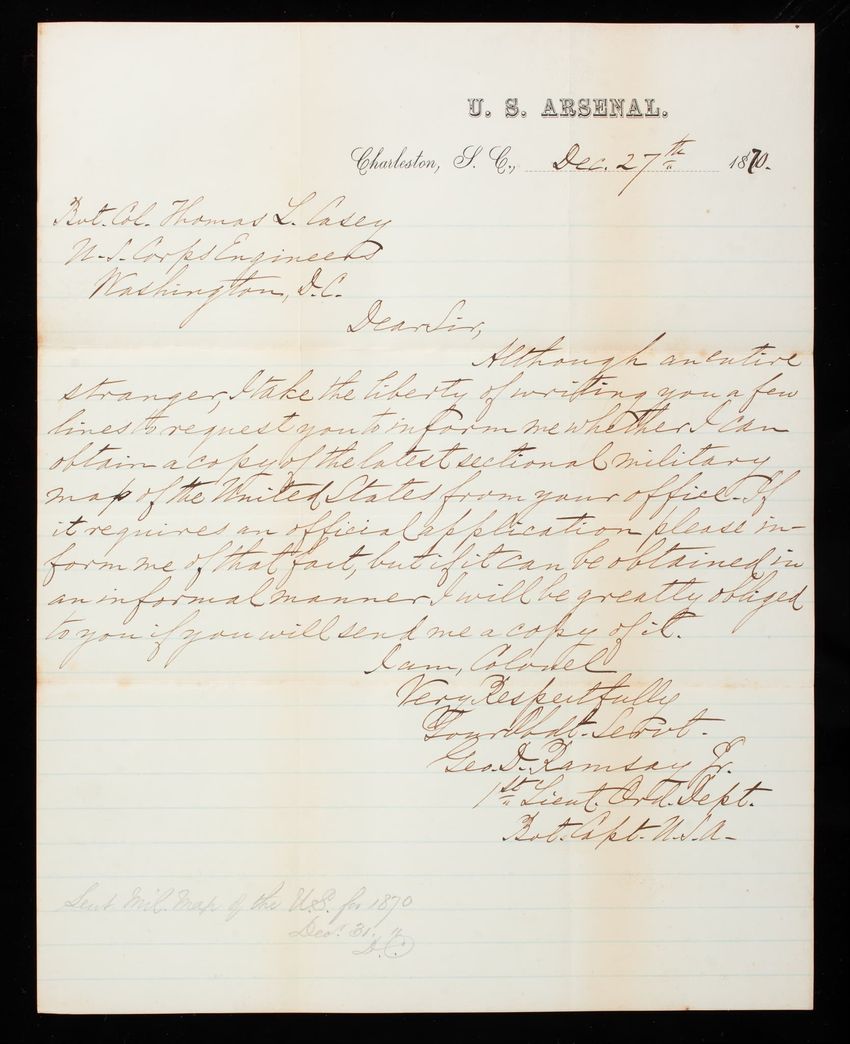 U. S. ARSENAL.
Charleston, S. C., Dec. 27th 1870.
Bvt. Col. Thomas L. Casey
U.S. Corps Engineers
Washington, D.C.
Dear Sir,
Although an entire
stranger, I take the liberty of writing you a few
lines to request you to inform me whether I can
obtain a copy of the latest sectional military
map of the United States from your office. If
it requires an official application please in-
form me of that fact, but if it can be obtained in
an informal manner I will be greatly obliged
to you if you will send me a copy of it.
I am, Colonel
Very Respectfully
Your Obdt. Servt.
Geo. D. Ramsay Jr.
1st Lieut. Ord. Dept.
Bvt. Capt. U.S.A.
Sent Mil. Map of the U.S. for 1870
Dec. 31. "